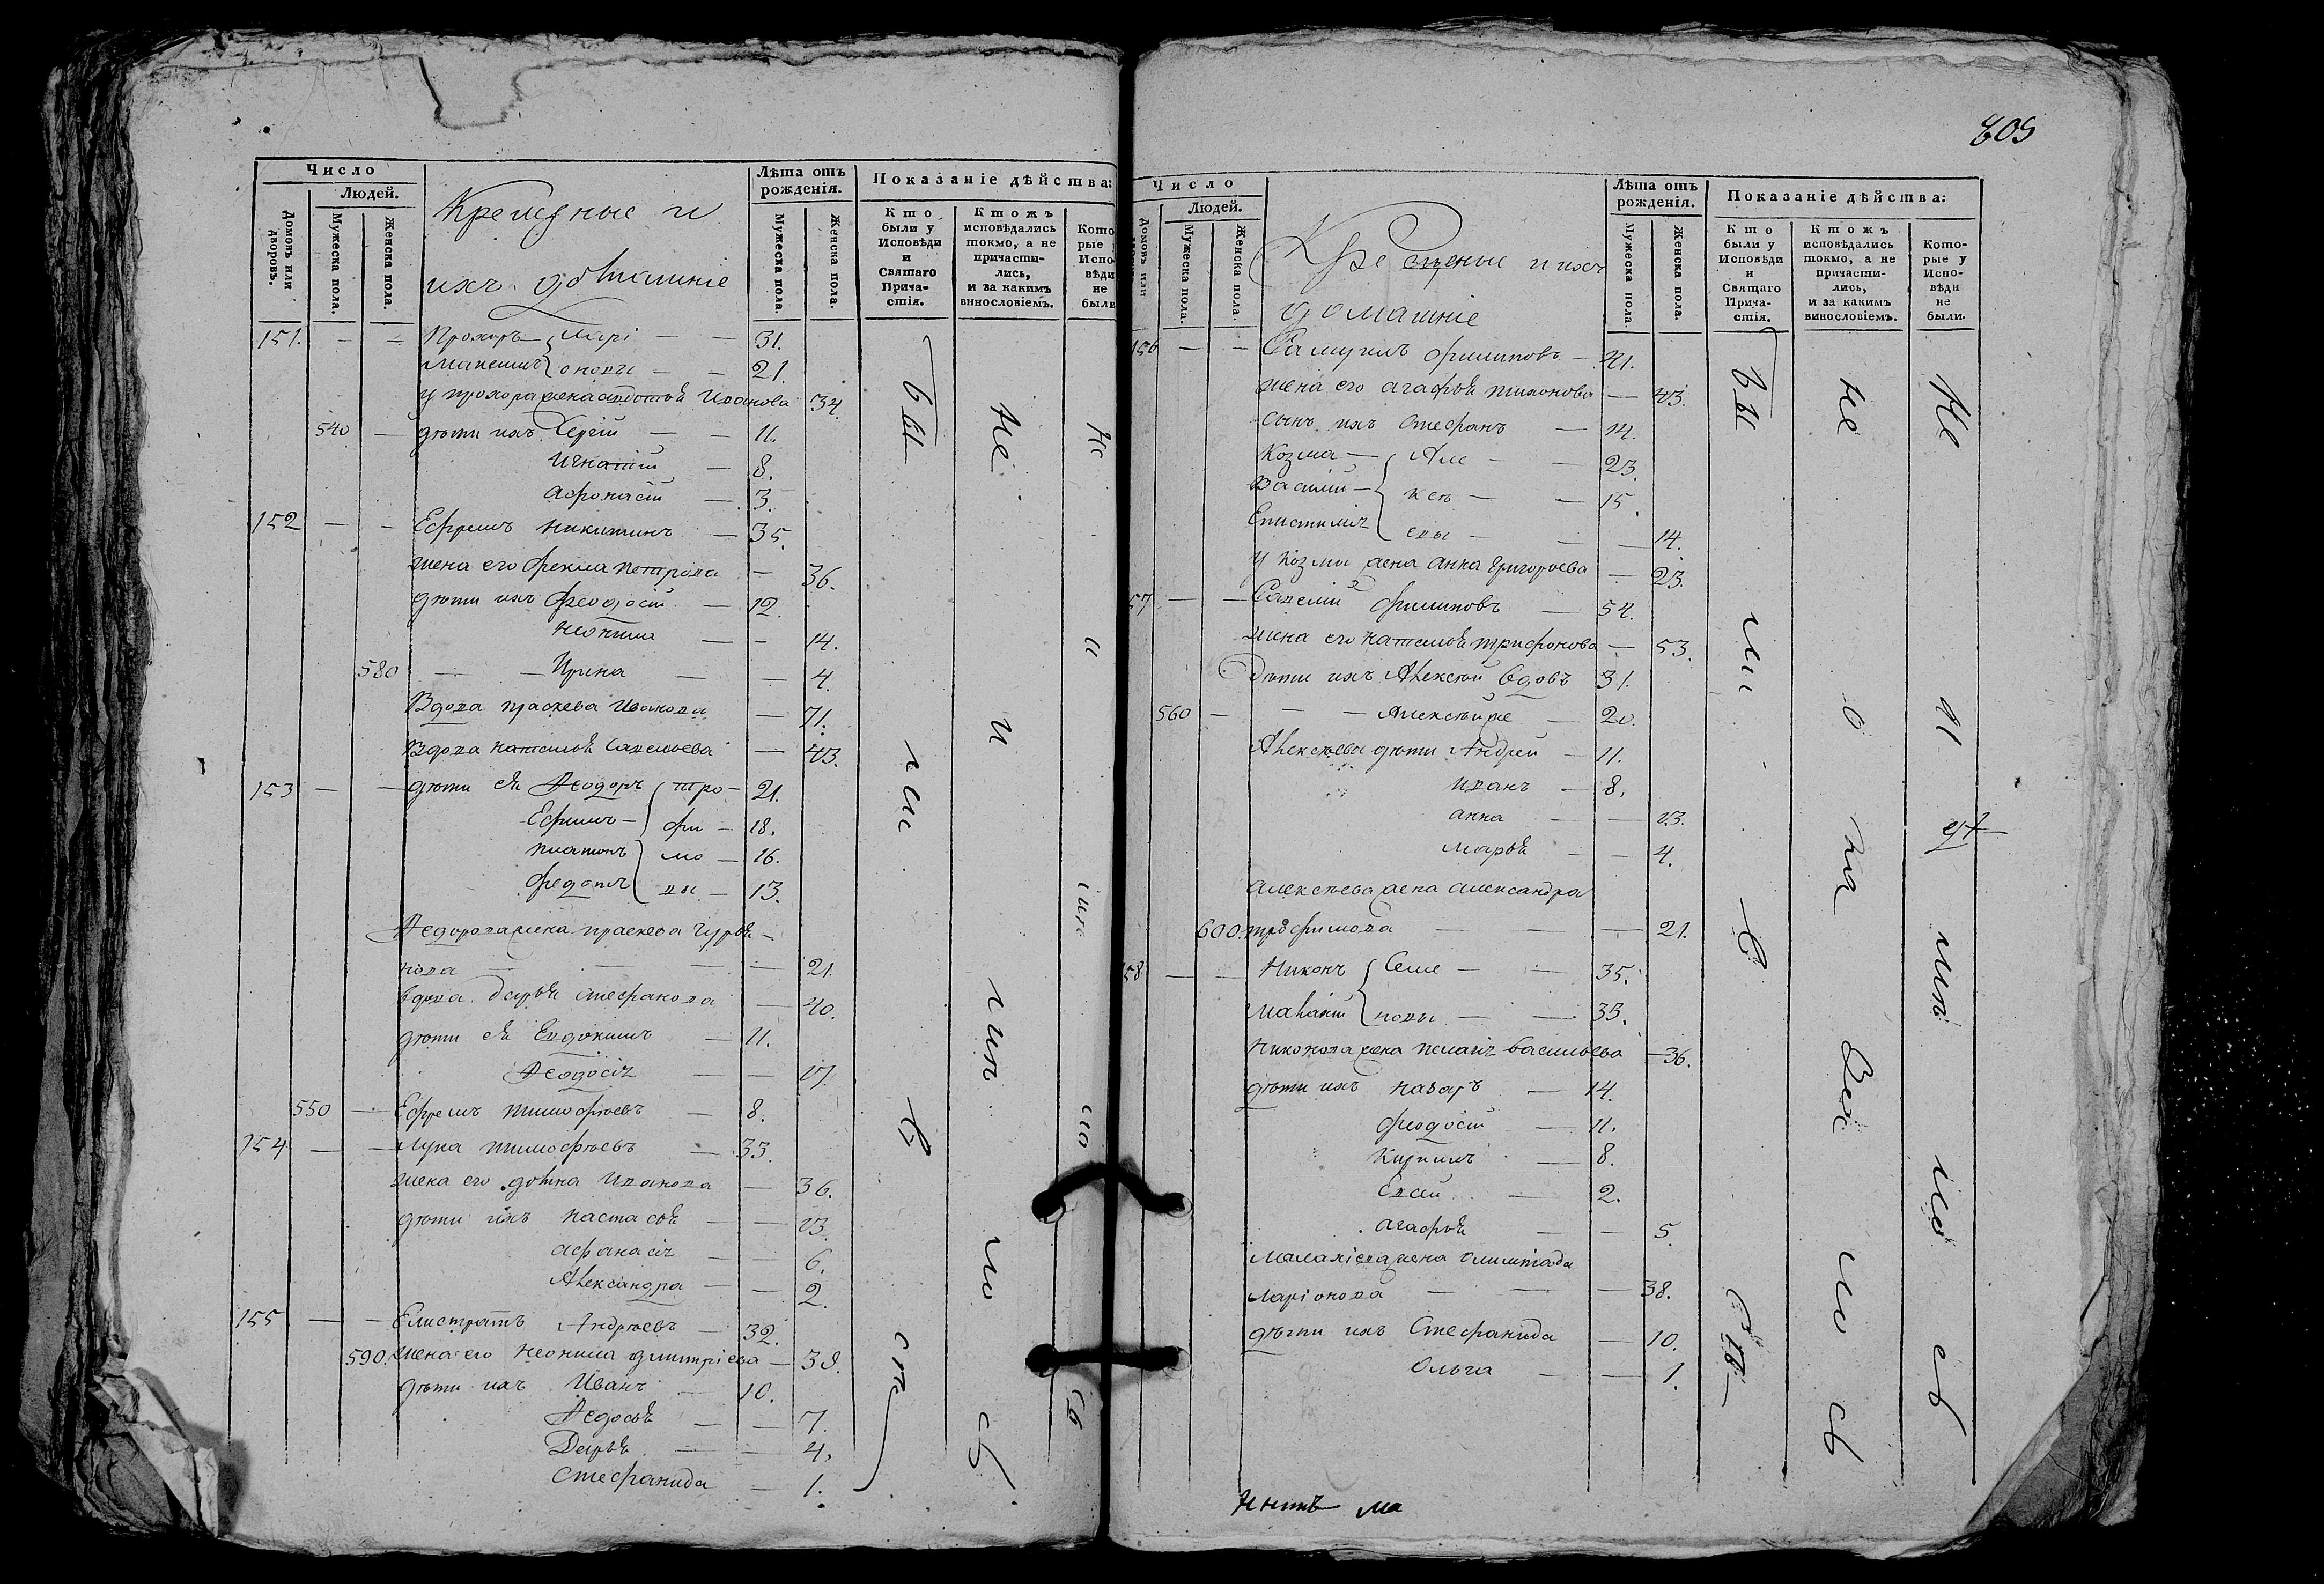 805
Число
Людей.
Домовъ или дворовъ.
Мужеска пола.
Женска пола.
Крещеные и
ихъ домашніе
Лѣта отъ рожденія.
Мужеска пола.
Женска пола.
Показаніе дѣйства:
Кто были у Исповѣди и Святаго Причастія.
Ктожъ исповѣдались токмо, а не причастились, и за какимъ винословіемъ.
Которые Исповѣди не были
151. — — Прохоръ { Иларі — — 31.
Максимъ { оновы — — 21.
у прохора жена авдотья Иванова 34.
540 — дѣти ихъ Сергій — — 11.
Игнатій — 8.
Афонасій — 3.
152 — — Ефремъ никитинъ — 35.
жена его фекла петрова — 36.
дѣти ихъ феодосій — 12.
неонила — — 14.
580 — — Ирина — — 4.
Вдова праскева Иванова — 71.
Вдова наталья савельева — 43.
153 — — дѣти ея Ѳеодоръ { тро — 21.
Ефимъ — { фи — 18.
платонъ { мо — 16.
федотъ { вы — 13.
Ѳедорова жена праскева гурья-
нова — — — — 21.
вдова дарья стефанова — 40.
дѣти ея Евдокимъ — 11.
Ѳеодосія — — 17.
550 — Ефремъ тимофѣевъ — 8.
154 — — лука тимофѣевъ — 33.
жена его домна Иванова — 36.
дѣти ихъ настасья — — 13.
афанасія — — 6.
Александра — — 2.
155 — — Елистратъ Андрѣевъ — 32.
590. жена его неонила дмитріева — 38.
дѣти ихъ Иванъ — 10.
Ѳедосья — — 7.
Дарья — — 4.
Стефанида — 1.
бы
ли
Не
и
Не
и
Число
Людей.
Домовъ или
Мужеска пола.
Женска пола.
Крещеные и ихъ
домашніе
Лѣта отъ рожденія.
Мужеска пола.
Женска пола.
Показаніе дѣйства:
Кто были у Исповѣди и Святаго Причастія.
Ктожъ исповѣдались токмо, а не причастились, и за какимъ винословіемъ.
Которые у Исповѣди не были.
156 — — Самуилъ филиповъ — 41.
жена его агафья тихонова — 43.
сынъ ихъ Стефанъ — 14.
Козма — { Але — — 23.
Василій — { ксѣ — — 15.
Епистимія { евы — — — 14.
у козмы жена анна григорьева — 23.
57 — — Савелій филиповъ — 54.
жена его наталья трифонова — 53.
Дѣти ихъ Алексѣй вдовъ 31.
560 — — — Алексѣй же — 20.
Алексѣевы дѣти Андрей — 11.
иванъ — 8.
анна — — 13.
марья — — 4.
алексѣева жена александра
600. трофимова — — — 21.
58 — — Никонъ { Семе — — 35.
Малахій { новы — — 33.
никонова жена пелагія васильева — 36.
дѣти ихъ назаръ — 14.
феодосій — 11.
Кирилъ — 8.
Евсей — 2.
агафья — — 5.
малахіева жена олимпіада
ларіонова — — — 38.
дѣти ихъ Стефанида — 10.
Ольга — — 1.
бы
ли
Не
Не